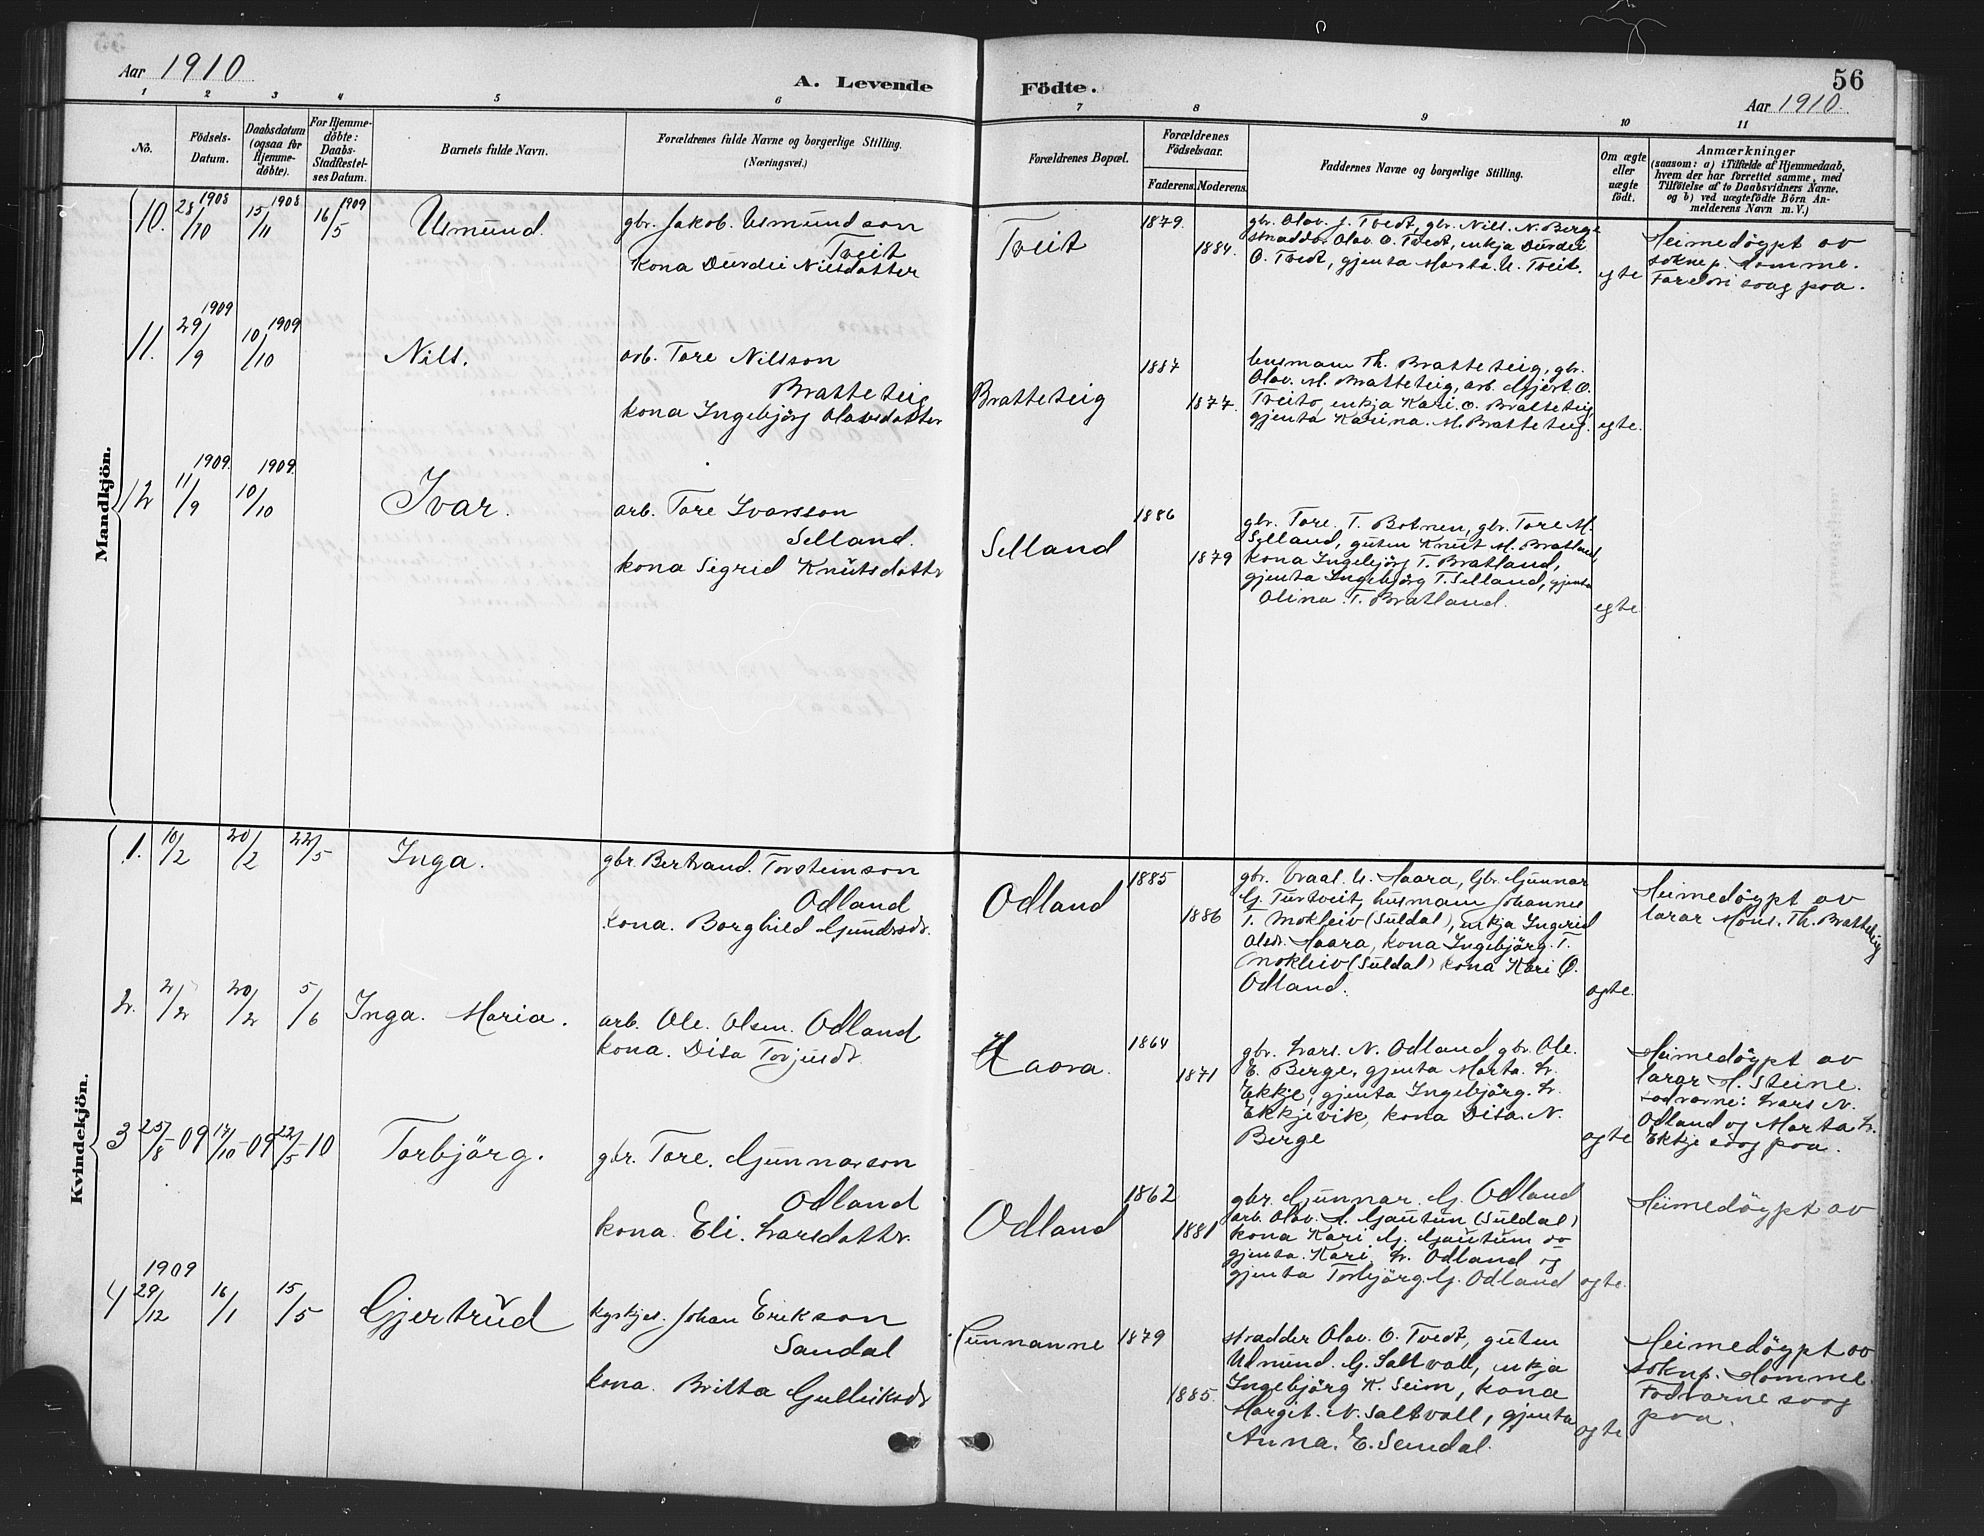 Aar 1910
A. Levende Födte.
56
Aar 1910.
1 2 3 4 5 6 7 8 9 10 11
No.
Födsels-Datum.
Daabsdatum (ogsaa for Hjemmedöbte).
For Hjemmedöbte: Daabs-Stadfestelses Datum.
Barnets fulde Navn.
Forældrenes fulde Navne og borgerlige Stilling.
(Næringsvei.)
Forældrenes Bopæl.
Forældrenes Födselsaar.
Faderens.
Moderens.
Faddernes Navne og borgerlige Stilling.
Om ægte eller uægte födt.
Anmærkninger
(saasom: a) i Tilfælde af Hjemmedaab,
hvem der har forrettet samme, med
Tilföielse af to Daabsvidners Navne,
og b) ved uægtefödte Börn Anmelderens Navn m. V.)
Mandkjön.
10. 28/10 1908 15/11 1908 16/5 1909 Usmund.
gbr. Jakob. Usmundson
Tveit
kona Durdei Nilsdatter
Tveit
1879
1884.
gbr. Olav. J. Tvedt, gbr. Nils. N. Berge
stradder Olav. O. Tvedt, enkja Durdei
O. Tvedt, gjenta Marta. U. Tveit.
egte
Heimedöypt av
soknep. Homme.
saag paa.
11. 29/9 1909 10/10 1909 Nils.
arb. Tore Nilsson
Bratteteig
kona Ingebjörg Olavsdatter
Bratteteig
1887
1877.
husmann Th. Bratteteig, gbr.
Olav. M. Bratteteig, arb. Gjert O.
Tveito, enkja Kari. O. Bratteteig,
gjenta Karina. M. Bratteteig.
egte.
12 11/9 1909. 10/10 1909. Ivar.
arb. Tore Ivarsson
Selland.
kona Sigrid Knutsdattr
Selland
1886
1879
gbr. Tore. T. Botnen, gbr. Tore M.
Selland, guten Knut M. Bratland,
kona Ingebjörg T. Bratland,
gjenta Ingebjörg T. Selland, gjenta
Olina. T. Bratland.
egte
Kvindekjön.
1. 10/2 20/2 22/5 Inga.
gbr. Bertrand. Torsteinson
Odland
kona. Borghild Gundersdr.
Odland
1885
1886
gbr. U. Haara, Gbr. Gunnar
G. Turtveit, husmann Johannes
T. Mokleiv (Suldal), enkja Ingerid
Olsdr. Haara, kona Ingebjörg. T.
Mokleiv (Suldal) kona Kari O.
Odland.
egte.
Heimedöypt av
lærar Mons. Th. Bratteteig
2. 2/2 20/2 5/6 Inga. Maria.
arb. Ole. Olsen. Odland
kona. Disa Torjusdr.
Haara.
1864
1871
gbr. Lars. N. Odland gbr. Ole.
E. Berge, gjenta Marta. L.
Ekkje, gjenta Ingebjörg. L.
Ekkjevik, kona Disa. N.
Berge
egte
Heimedöypt av
lærar M. Steine.
Fadrarne: Lars N.
Odland og Marta L.
Ekkje saag paa.
3 25/8-09 17/10-09 22/5-10 Torbjörg.
gbr. Tore. Gunnarson
Odland
kona. Eli. Larsdattr.
Odland
1862
1881
gbr. Gunnar. G. Odland
arb. Olav. A. Gautun (Suldal)
kona Kari G. Gautun
gjenta. Kari L. Odland og
gjenta Torbjörg. G. Odland
egte.
Heimedöypt av
4 29/12 1909 16/1 15/5 Gjertrud
Johan Erikson
Sandal
kona. Britta Gulleiksdr
1879
1885.
stradder Olav. O. Tvedt, guten
Usmund. G. Saltvoll, enkja
Ingebjörg K. Seim, kona
Margit. N. Saltvoll, gjenta
Anna. E. Sandal.
egte
Heimedöypt av
soknep. Homme.
Fadrarne saag
paa.